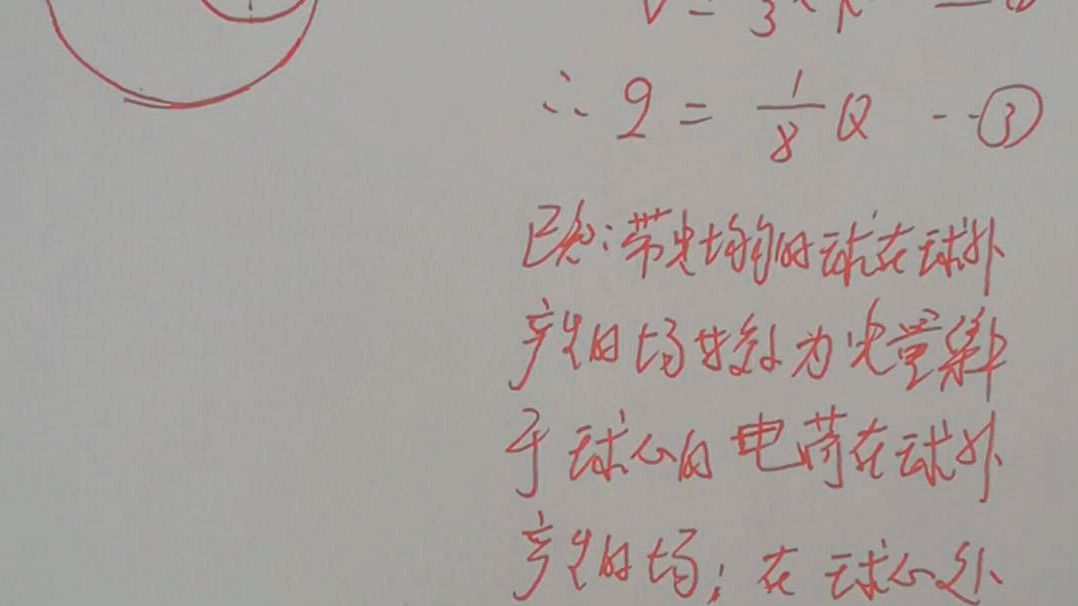 ∴ q = 1/8 Q --③
已知:带电均匀的球在球外
产生的场等效为电量集中
于球心的电荷在球外
产生的场;在球心处